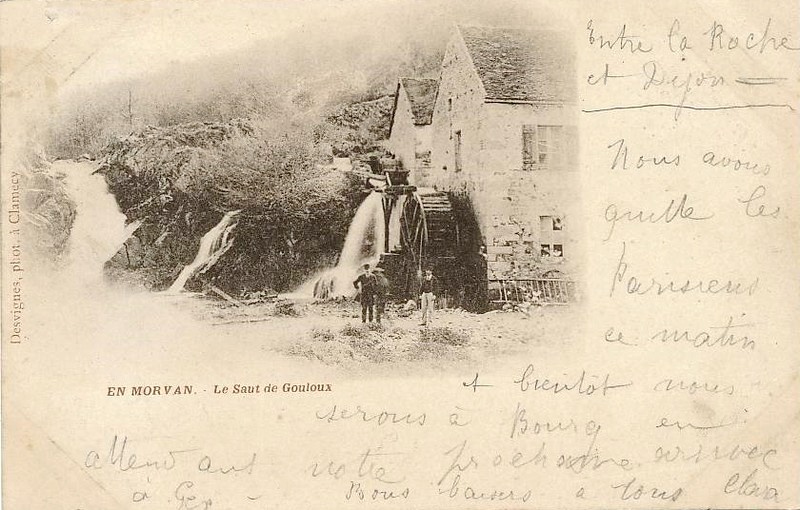 Entre la Roche
et Dijon —
Nous avons
quitté les
Parisiens
ce matin
et bientôt nous
serons à Bourg en
attendant notre prochaine arrivée
à Gex - Bons baisers à tous Clara
EN MORVAN. - Le Saut de Gouloux
Desvignes, phot. à Clamecy